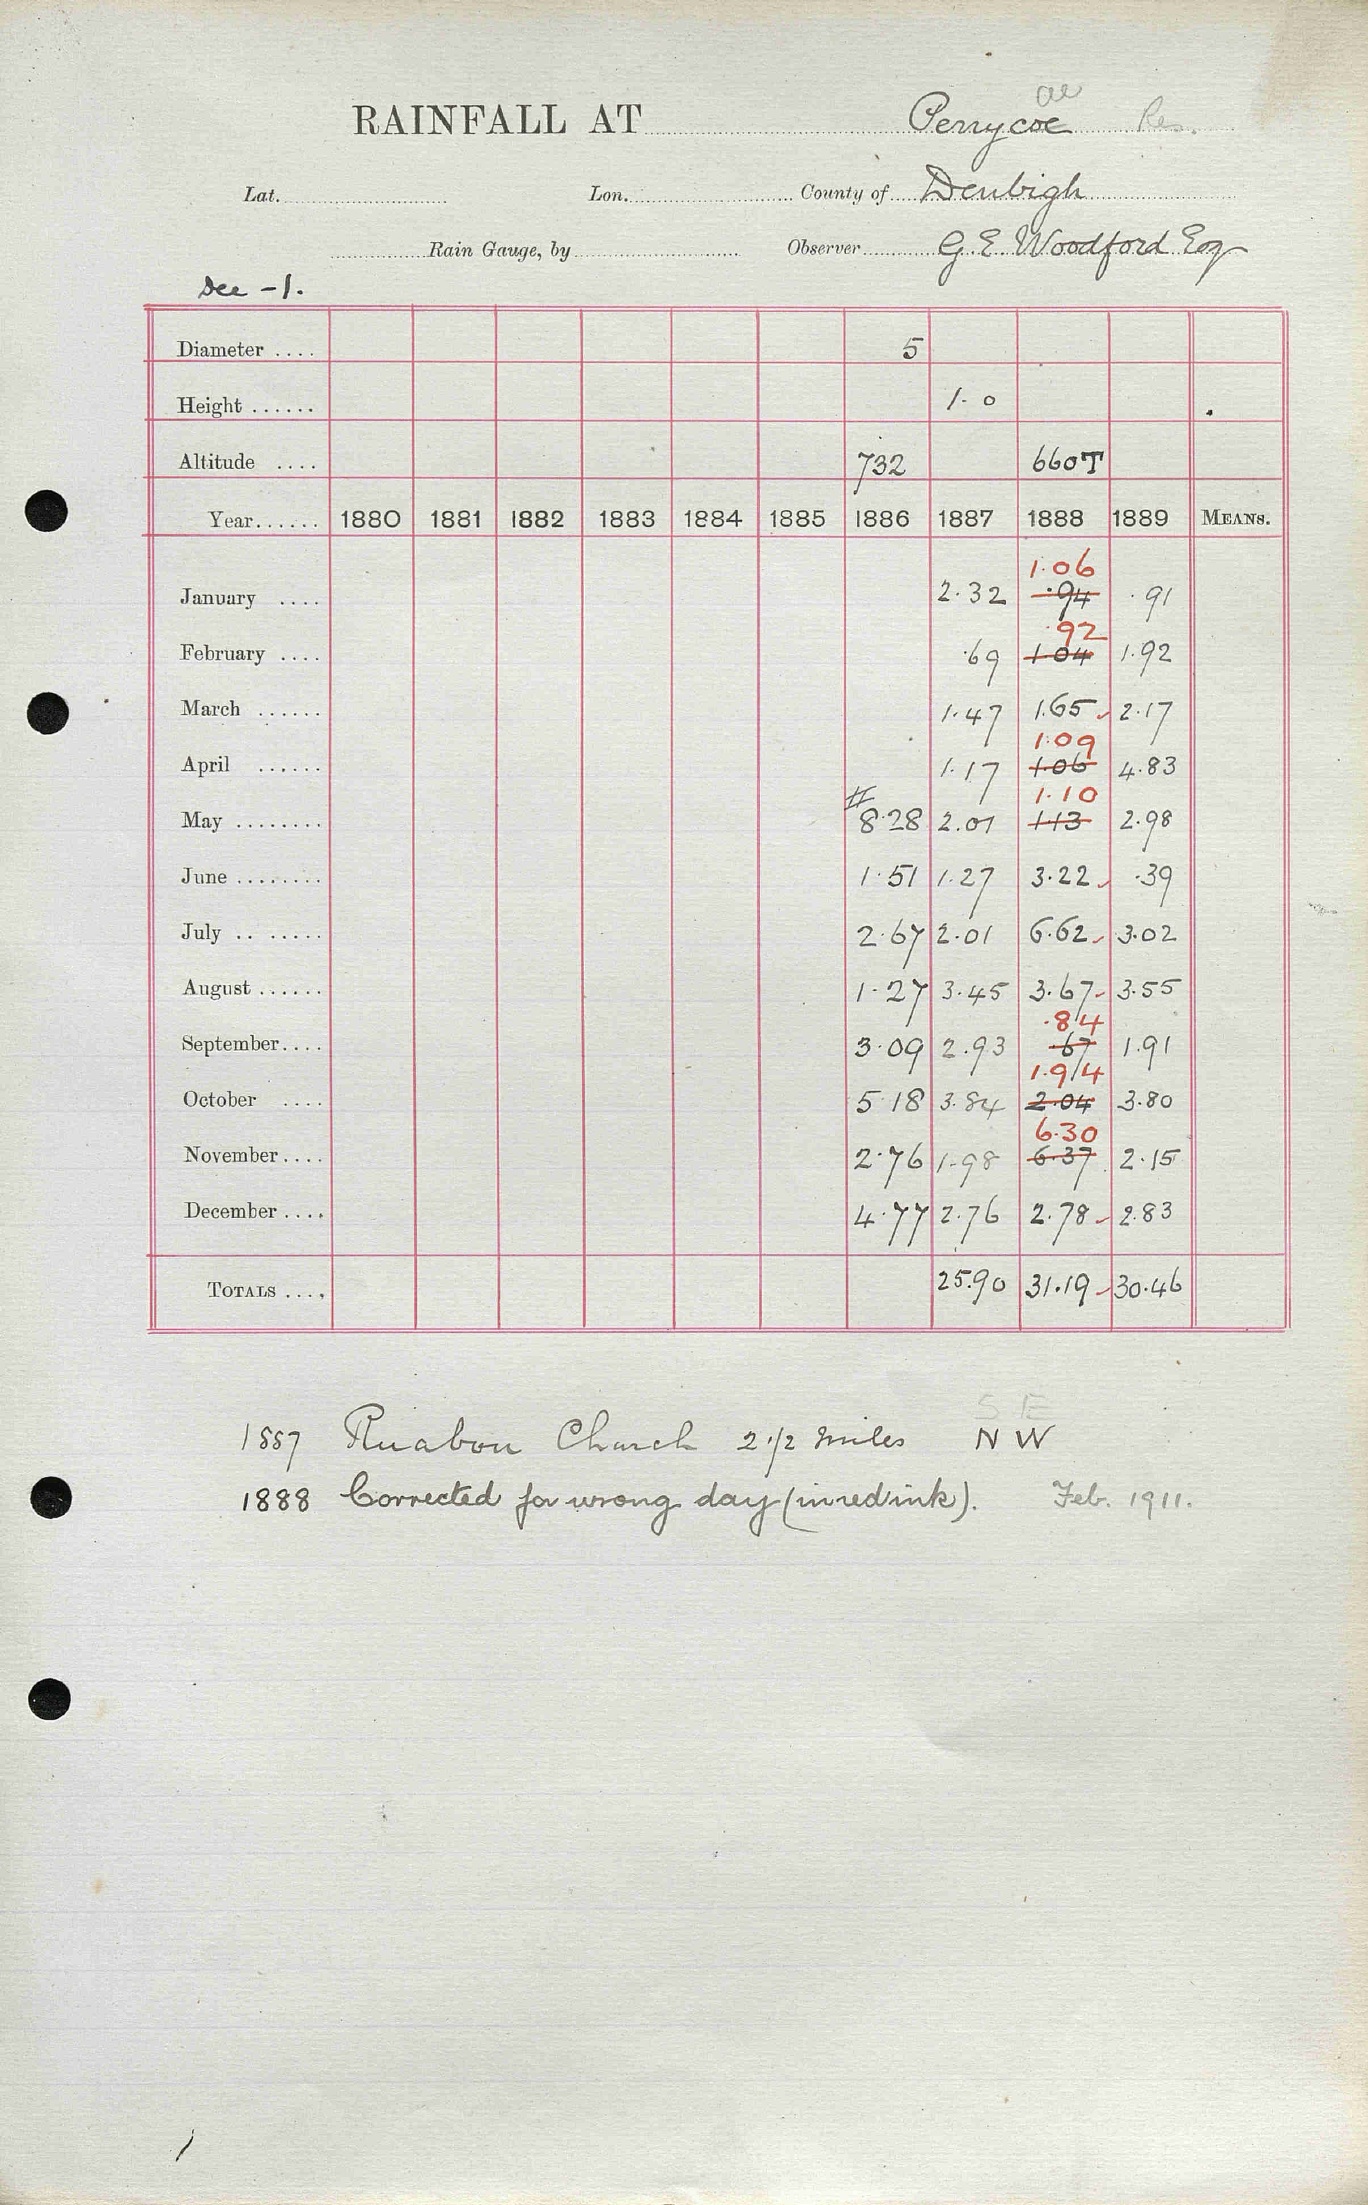 ae
RAINFALL AT Penycoe Res.
Lat. Lon. County of Denbigh
Rain Gauge, by Observer G. E. Woodford Esq
Dec -1.
Diameter .... 5
Height ...... 1.0
Altitude .... 732 660T
Year...... 1880 1881 1882 1883 1884 1885 1886 1887 1888 1889 MEANS.
1.06
January .... 2.32 .94 .91
.92
February .... .69 1.04 1.92
March ...... 1.47 1.65 2.17
1.09
April ...... 1.17 1.06 4.83
1.10
May ........ # 8.28 2.01 1.13 2.98
June ........ 1.51 1.27 3.22 .39
July .. ..... 2.67 2.01 6.62 3.02
August ...... 1.27 3.45 3.67 3.55
.84
September.... 3.09 2.93 .67 1.91
1.94
October .... 5.18 3.84 2.04 3.80
6.30
November.... 2.76 1.98 6.37 2.15
December .... 4.77 2.76 2.78 2.83
TOTALS .... 25.90 31.19 30.46
S E
1887 Ruabon Church 2 1/2 miles N W
1888 Corrected for wrong day (in red ink). Feb. 1911.